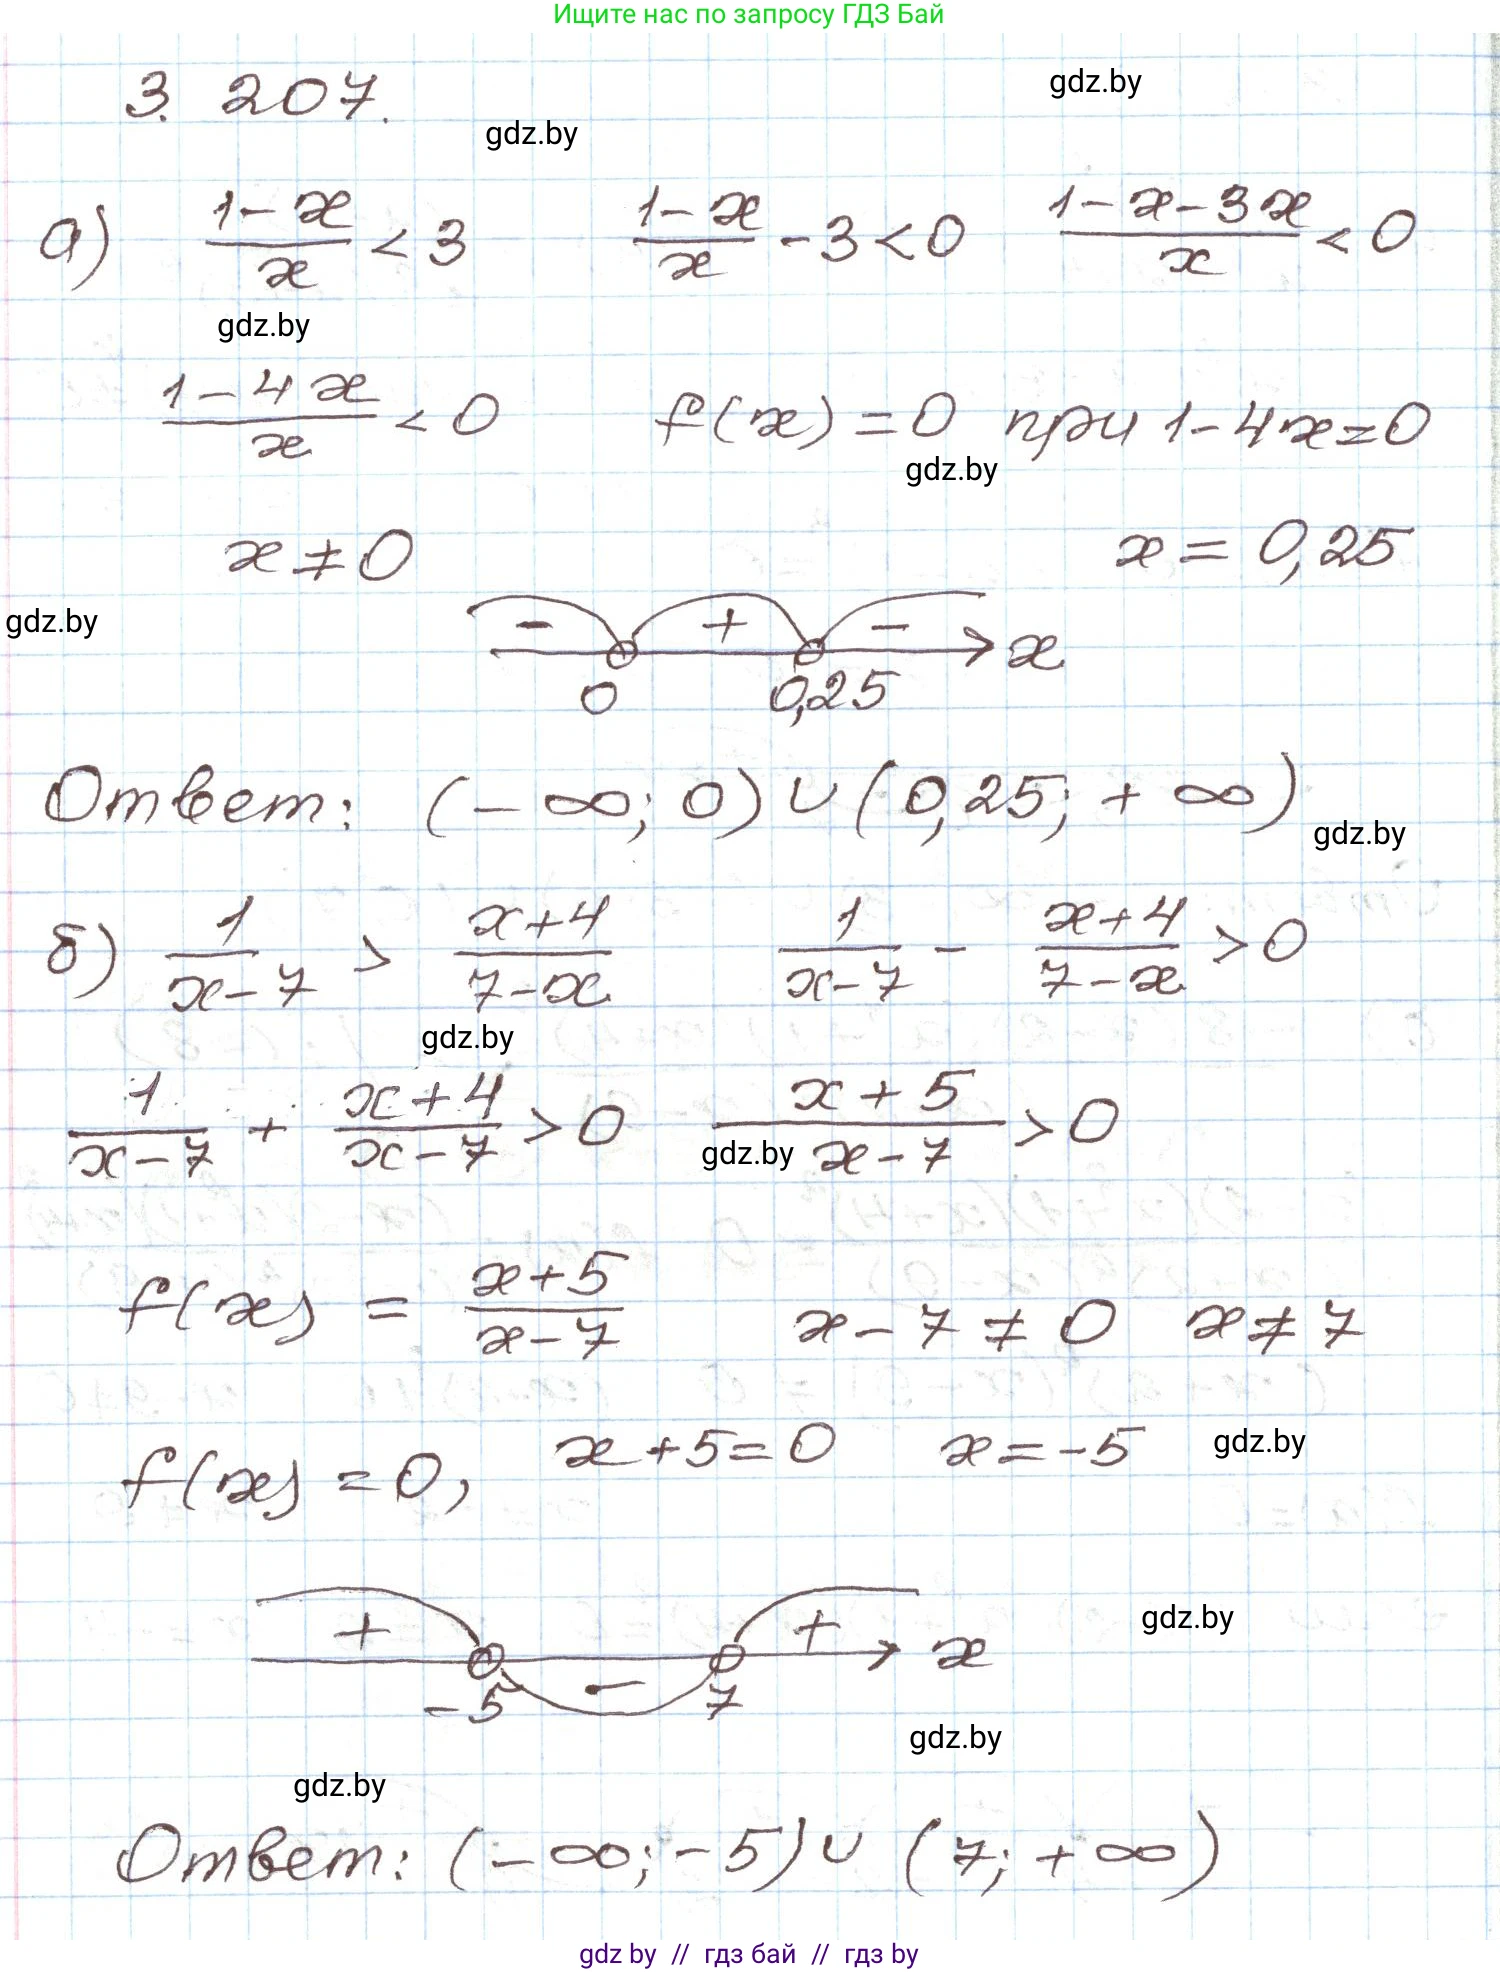 Ищите нас по запросу ГДЗ Бай
3. 207.
gdz.by
gdz.by
а) (1-x)/x < 3 (1-x)/x - 3 < 0 (1-x-3x)/x < 0
gdz.by
(1-4x)/x < 0 f(x) = 0 при 1-4x=0
gdz.by
x ≠ 0 x = 0,25
gdz.by
- + - x
0 0,25
Ответ: (-∞; 0) ∪ (0,25; +∞)
gdz.by
б) 1/(x-7) > (x+4)/(7-x) 1/(x-7) - (x+4)/(7-x) > 0
gdz.by
1/(x-7) + (x+4)/(x-7) > 0 (x+5)/(x-7) > 0
gdz.by
f(x) = (x+5)/(x-7) x-7 ≠ 0 x ≠ 7
f(x) = 0, x+5=0 x=-5
gdz.by
+ - + x
gdz.by
-5 7
gdz.by
gdz.by
Ответ: (-∞; -5) ∪ (7; +∞)
gdz by // гдз бай // гдз by